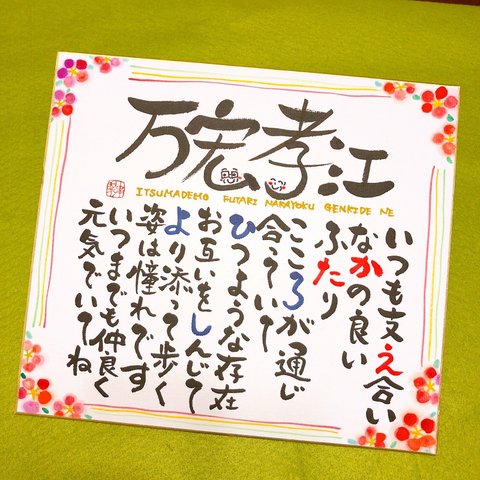 万宏孝江
ITSUMADEMO FUTARI NAKAYOKU GENKIDE NE
いつも支え合い
なかの良い
ふたり
こころが通じ
合っていて
ひつような存在
お互いをしんじて
より添って歩く
姿は憧れです
いつまでも仲良く
元気でいてね